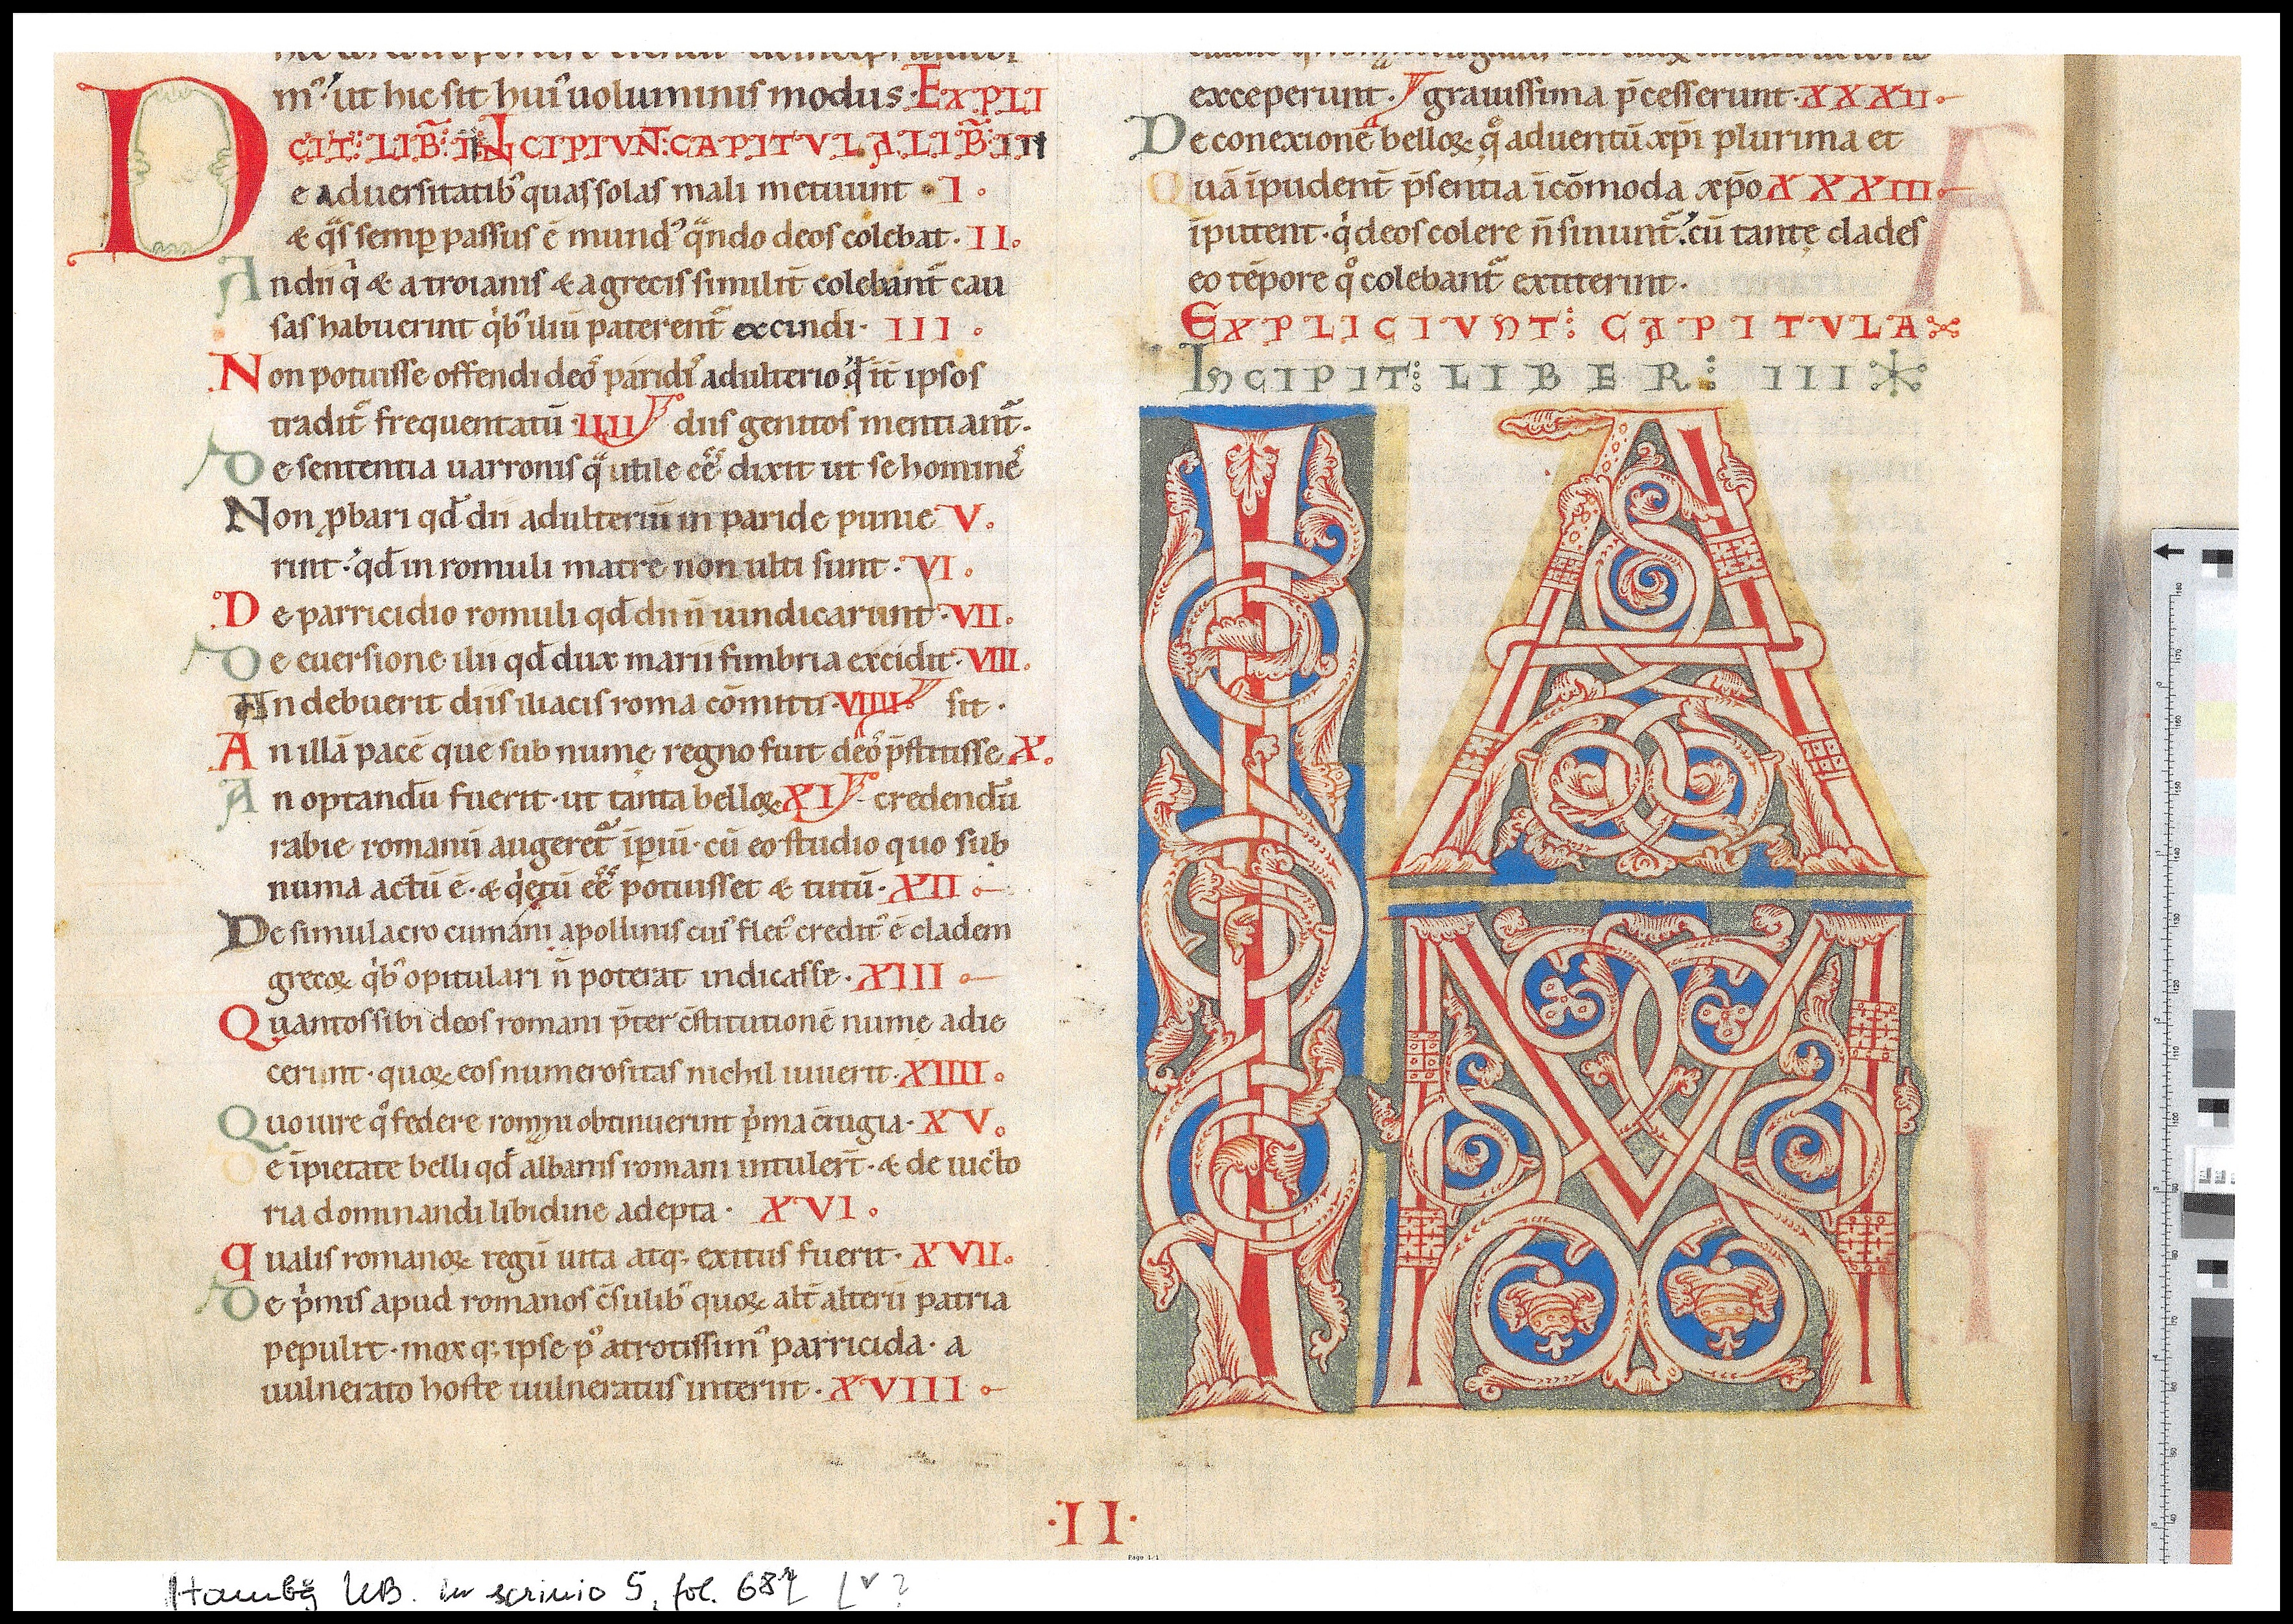 mꝰ ut hic sit huiꝰ uoluminis modus. EXPLI
CIT: LIB̃: II INCIPIVÑT: CAPITVLA LIB̃: III
De aduersitatibꝰ quas solas mali metuunt. I.
& q̃s semp̲ passus ē mundꝰ q̃ndo deos colebat. II.
An dii q̇ & a troianis & a grecis similit̃ colebant̃ cau
sas habuerint q̇bꝰ iliū paterent̃ excindi. III.
Non potuisse offendi deoꝰ paridiꝰ adulterio
tradit̃ frequentatū. IIII diis genitos mentiant̃.
De sententia uarronis utile dixit ut se homineꝰ
Non ꝓbari qđ dii adulteriū in paride punie V.
rint. qđ in romuli matre non ulti sunt. VI.
De parricidio romuli qđ dii ñ uindicarunt. VII.
De euersione ilii qđ dux marii fimbria excidit. VIII.
An debuerit diis iliacis roma cōmitti. VIIII sit.
An illā pacē que sub nume regno fuit deoꝰ p̄stitisse X.
An optandū fuerit. ut tanta belloꝝ XI credendū
rabie romanū augeret̃ īperiū. cū eo studio quo sub
numa actū ē. & q̇etū potuisset & tutū. XII
De simulacro cumani apollinis cuiꝰ fletꝰ creditꝰ ē cladem
grecoꝝ q̇bꝰ opitulari ñ poterat indicasse. XIII
Quantos sibi deos romani p̄ter c̄stitutionē nume adie
cerunt. quoꝝ eos numerositas nichil iuuerit. XIIII.
Quo iure qͦ federe romani obtinuerint p̄ma c̄iugia. XV.
De īpietate belli qđ albanis romani intulert̃. & de uicto
ria dominandi libidine adepta. XVI.
Qualis romanoꝝ regū uita atq; exitus fuerit. XVII.
De p̄mis apud romanos c̄sulibꝰ quoꝝ alt̃ alterū patria
pepulit. mox q; ipse pꝰ atrocissimꝰ parricida. a
uulnerato hoste uulneratus interiit. XVIII
exceperunt. grauissima p̄cesserunt. XXXII.
De conexione belloꝝ q̊ aduentū xp̄i plurima et
Quā īpudent̃ p̄sentia īcōmoda xp̄o XXXIII.
īputent. q̇ deos colere ñ sinunt̃. cū tantę clades
eo tēpore q̊ colebant̃ extiterint.
EXPLICIVNT: CAPITVLA
INCIPIT: LIBER: III
IAM
·II·
Page 1/1
Hambg UB. in scrinio 5, fol. 68r [v?